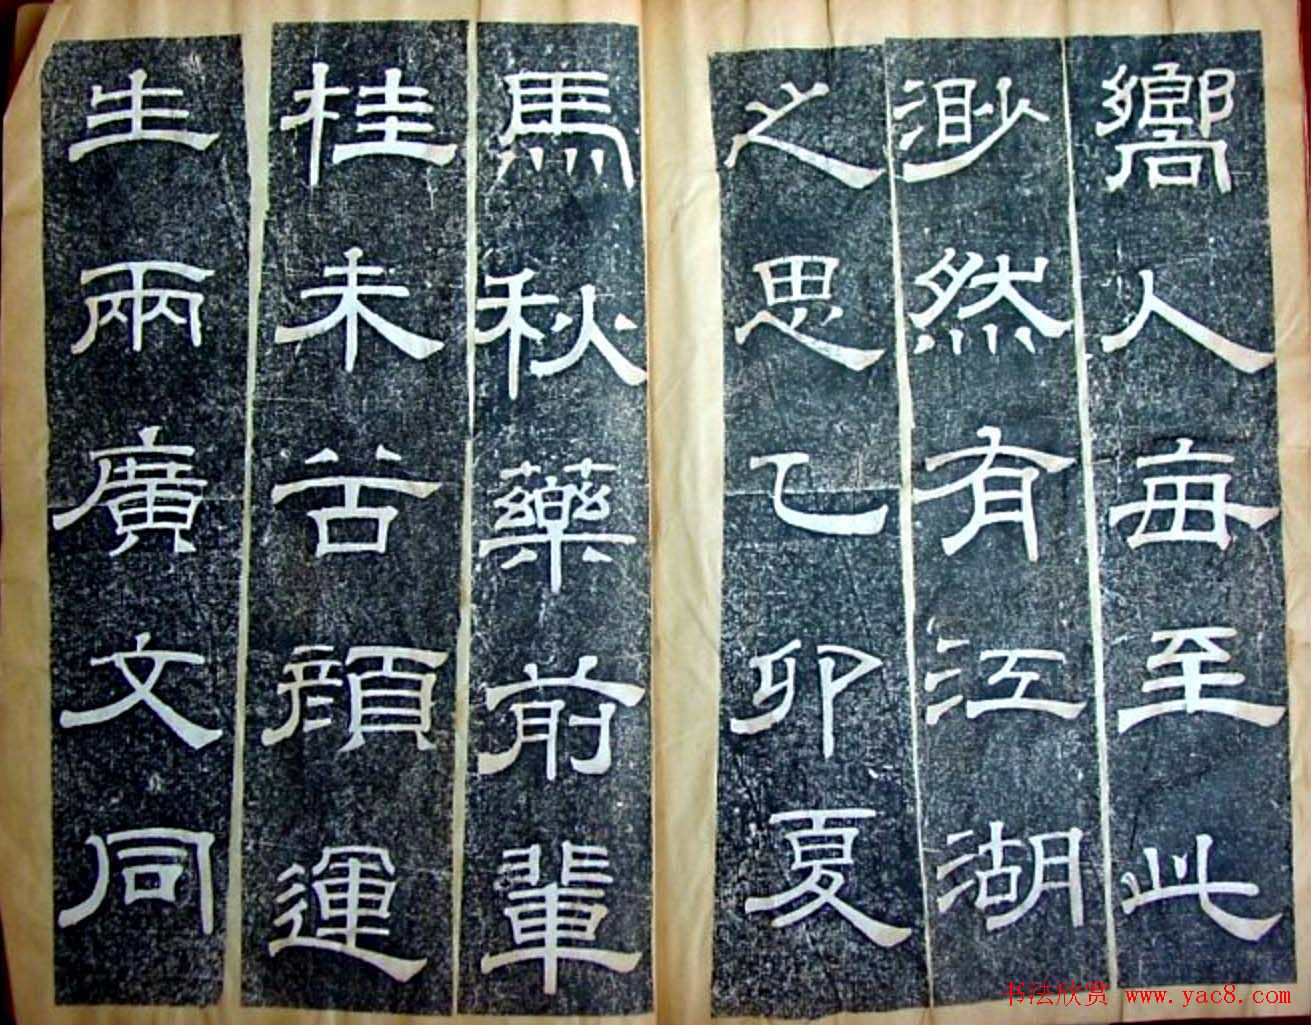 嚮人每至此
渺然有江湖
之思乙卯夏
馬秋藥前輩
桂未谷顏運
生兩廣文同
书法欣赏 www.yac8.com